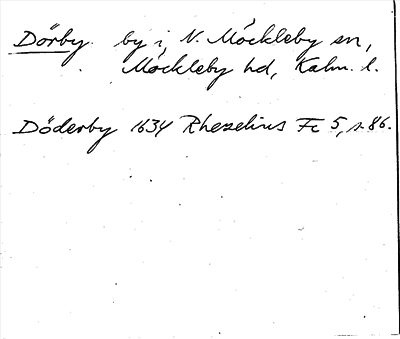 Dörby by i N. Möckleby sn,
Möckleby hd, Kalm. l.
Döderby 1634 Rhezelius Fc 5, s. 86.